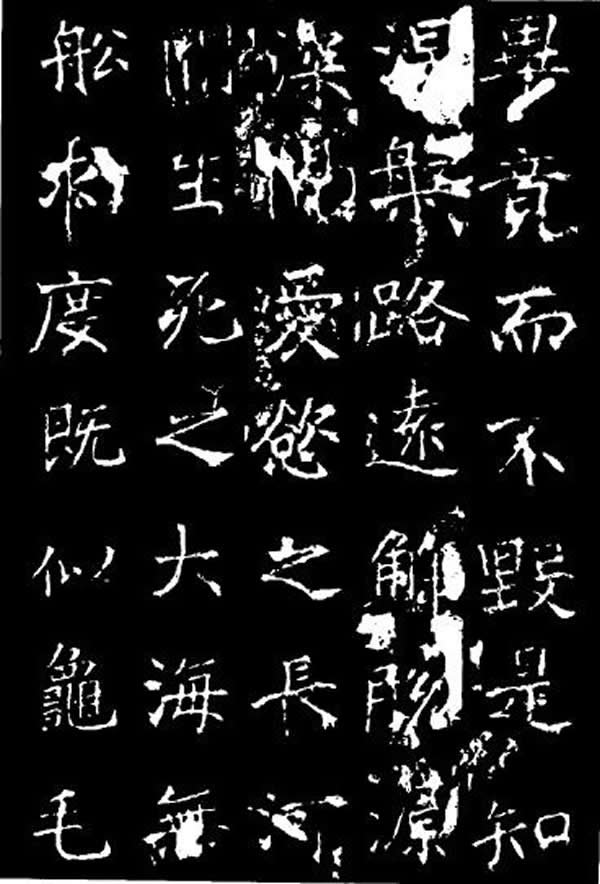 畢竟而不毀是知
涅槃路遠解脫源
深隔愛慾之長河
間生死之大海無
舩求度既似龜毛